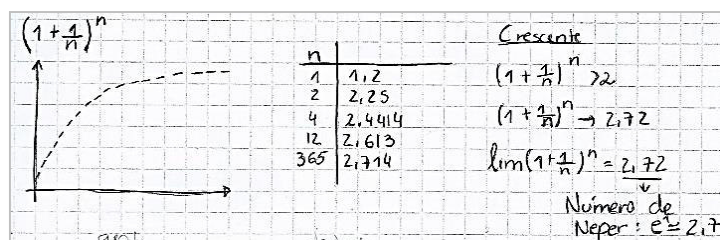 (1 + 1/n)^n
n
1 | 1,2
2 | 2,25
4 | 2,4414
12 | 2,613
365 | 2,714
Crescente
(1 + 1/n)^n >2
(1 + 1/n)^n → 2,72
lim (1 + 1/n)^n = 2,72
Número de
Neper : e^1 ≃ 2,7